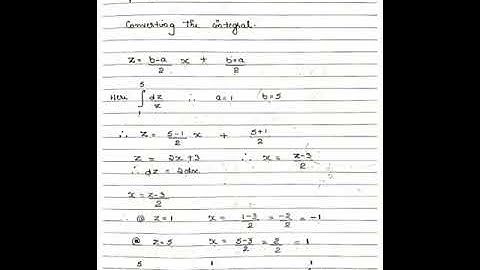 Converting the integral.
z = b-a/2 x + b+a/2
Here ∫₁⁵ dz/z ∴ a=1 b=5
∴ z = 5-1/2 x + 5+1/2
z = 2x+3 ∴ x = z-3/2
∴ dz = 2dx
x = z-3/2
@ z=1 x = 1-3/2 = -2/2 = -1
@ z=5 x = 5-3/2 = 2/2 = 1
5 1 1